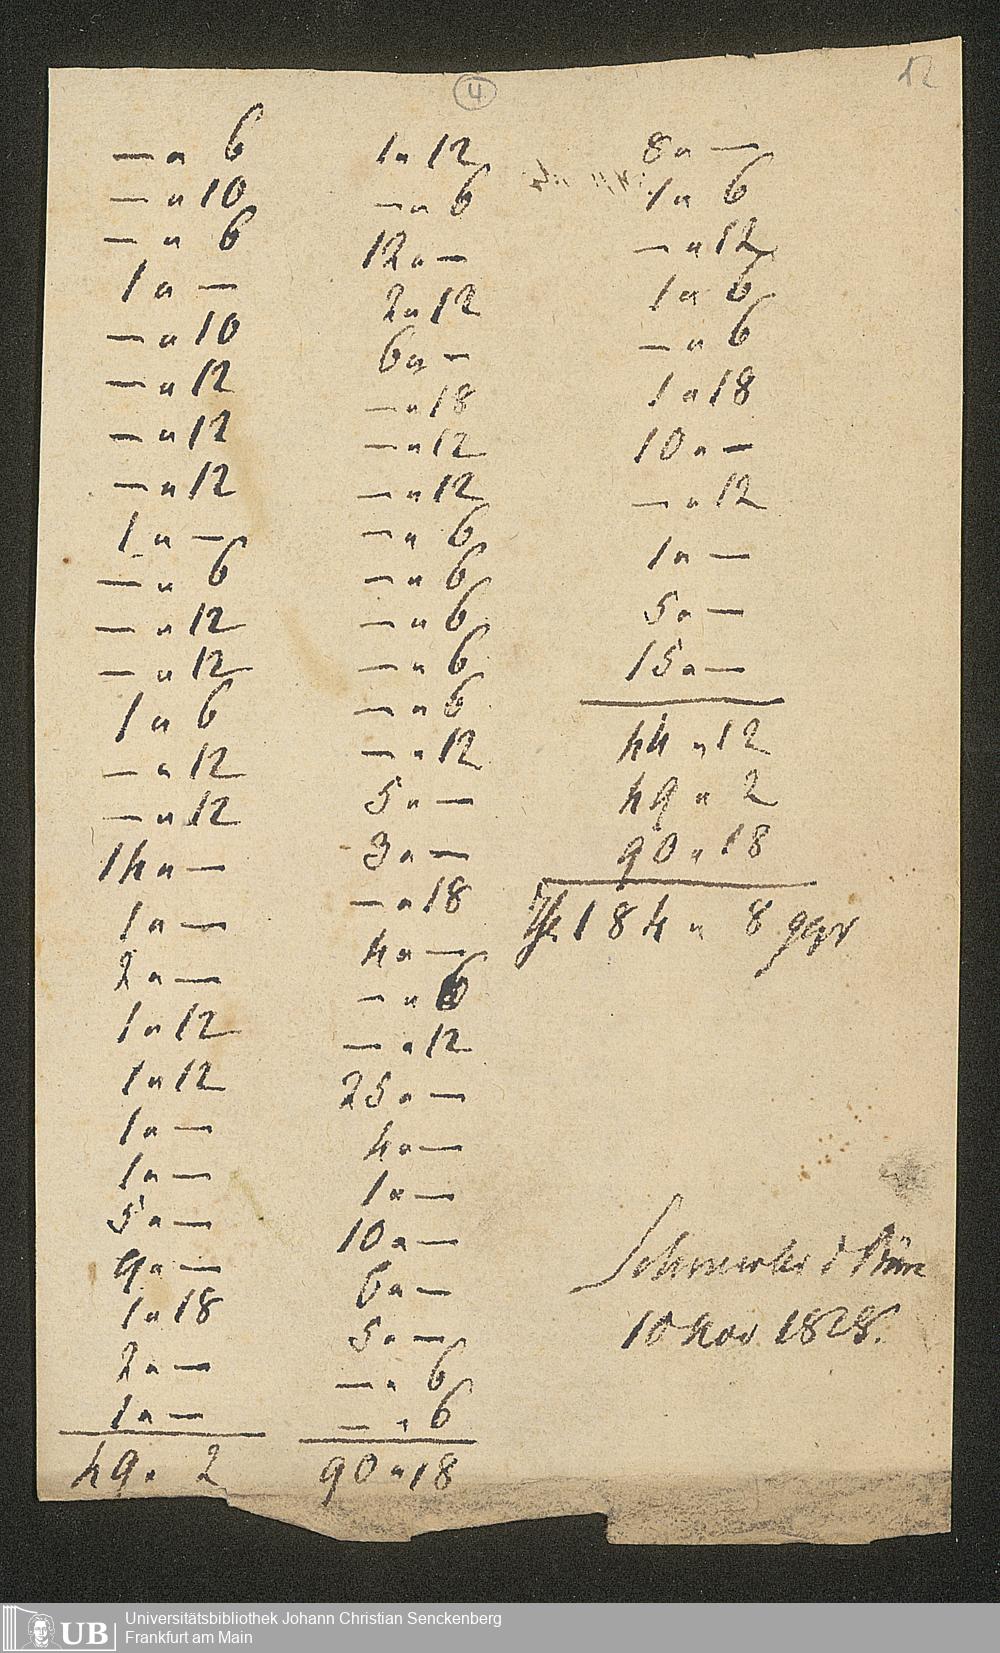 12
4
— " 6
— " 10
— " 6
1 " —
— " 10
— " 12
— " 12
— " 12
1 " —
— " 6
— " 12
— " 12
1 " 6
— " 12
— " 12
14 " —
1 " —
2 " —
1 " 12
1 " 12
1 " —
1 " —
5 " —
9 " —
1 " 18
2 " —
1 " —
49 " 2
1 " 12
— " 6
12 " —
2 " 12
6 " —
— " 18
— " 12
— " 12
— " 6
— " 6
— " 6
— " 6
— " 6
— " 12
5 " —
3 " —
— " 18
4 " —
— " 6
— " 12
25 " —
4 " —
1 " —
10 " —
6 " —
5 " —
— " 6
— " 6
90 " 18
8 " —
1 " 6
— " 12
1 " 6
— " 6
1 " 18
10 " —
— " 12
1 " —
5 " —
15 " —
44 " 12
49 " 2
90 " 18
184 " 8 ggr
10 Nov 1828.
UB
Universitätsbibliothek Johann Christian Senckenberg
Frankfurt am Main